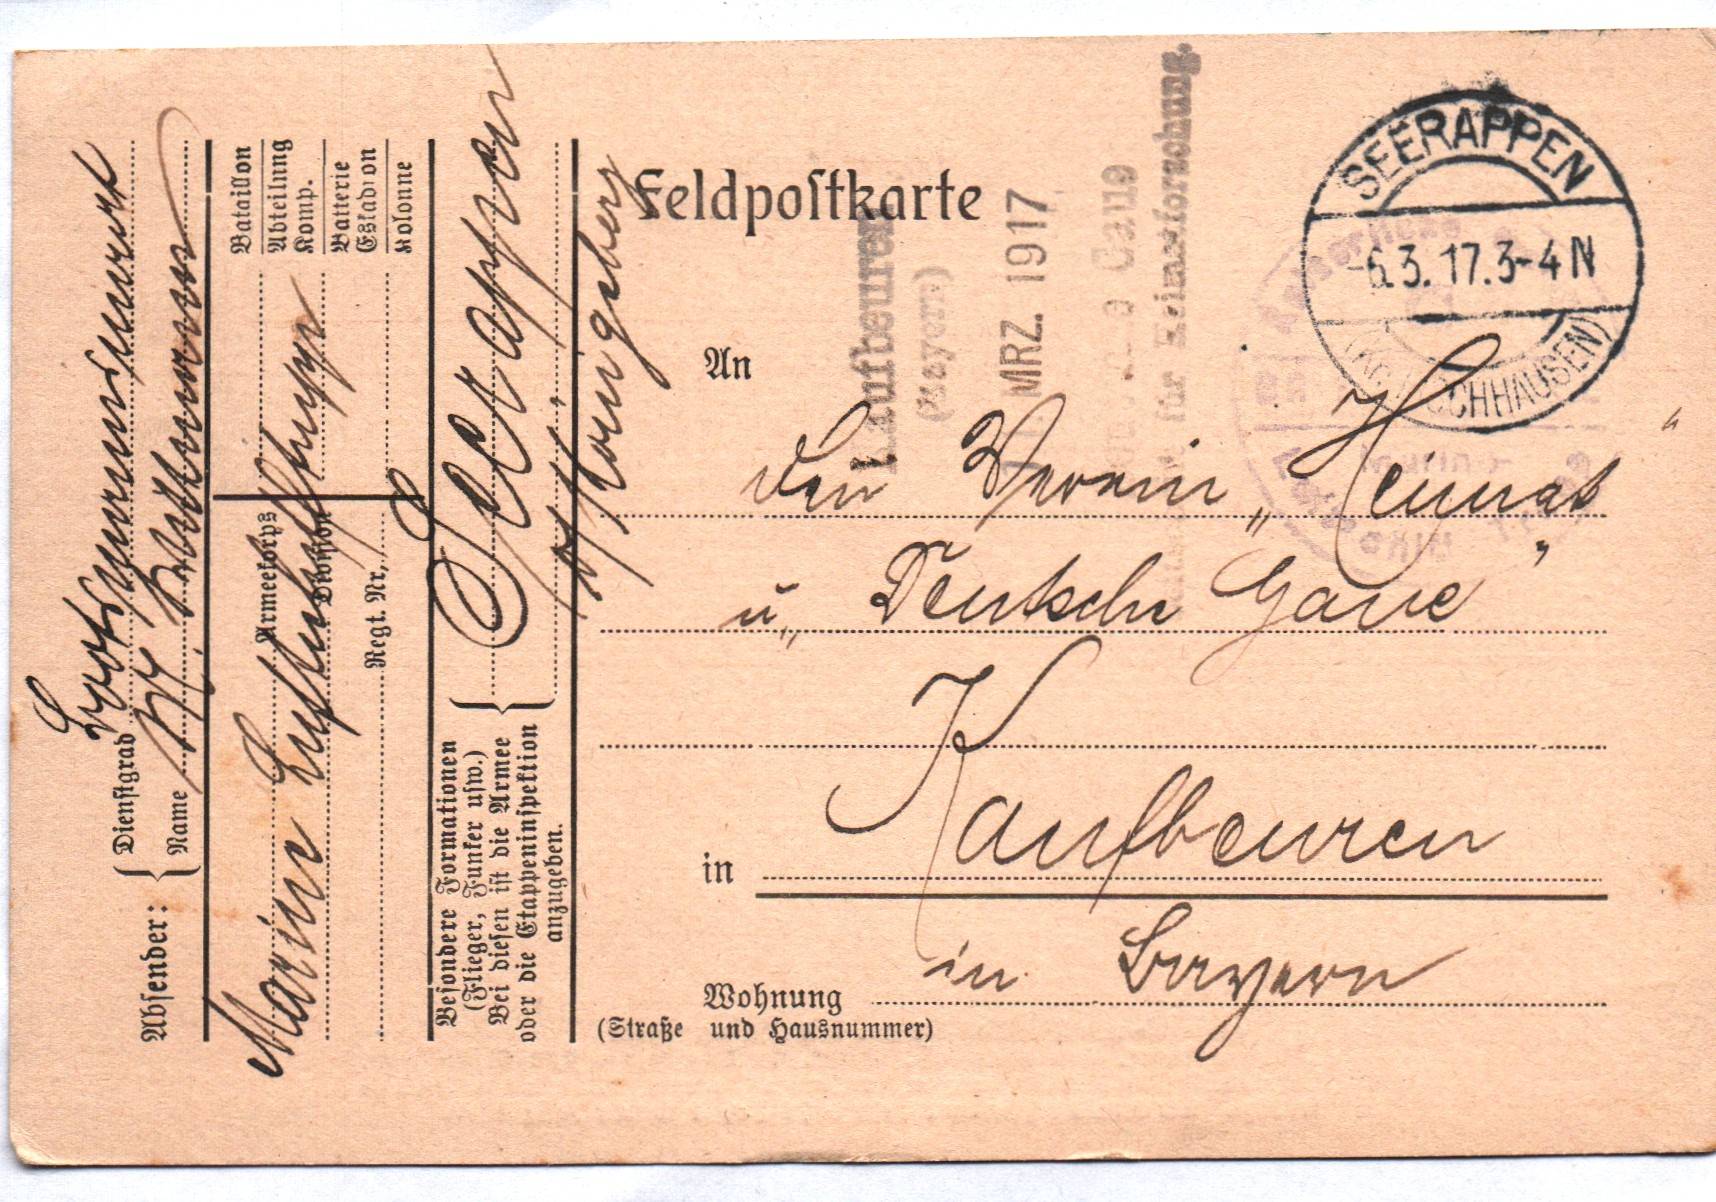 Feldpostkarte
SEERAPPEN
-6.3.17.3-4 N
An
den Verein „Heimat"
u. „Deutsche Gaue"
in Kaufbeuren
in Bayern
Wohnung
(Straße und Hausnummer)
Absender:
Dienstgrad
Name
Bataillon
Abteilung
Komp.
Batterie
Eskadron
Kolonne
Armeekorps
Division
Regt. Nr.
Marine Luftschifftrupp
Besondere Formationen
(Flieger, Funker usw.)
Bei diesen ist die Armee
oder die Etappeninspektion
anzugeben.
Seerappen
b/Königsberg
Kaufbeuren
(Bayern)
MRZ. 1917
Gaue
für Heimatforschung.